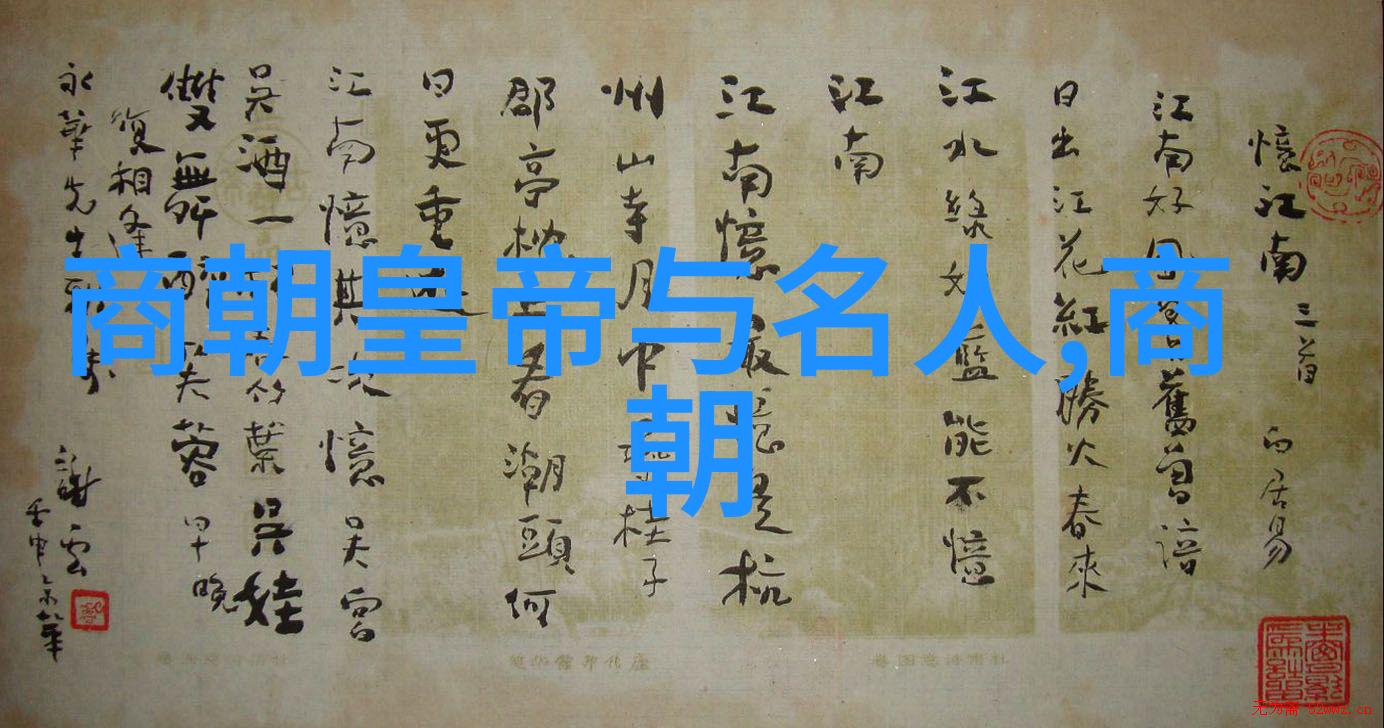 商朝皇帝与名人,商
朝
憶江南 三首 白居易
江南好風景舊曾諳
日出江花紅勝火春來
江水綠如藍能不憶
江南
江南憶最憶是杭
州山寺月中尋桂子
郡亭枕上看潮頭何
日更重遊
江南憶其次憶吳宮
吳酒一杯春竹葉吳娃
雙舞醉芙蓉早晚
復相逢
永華先生
謝雲
壬申